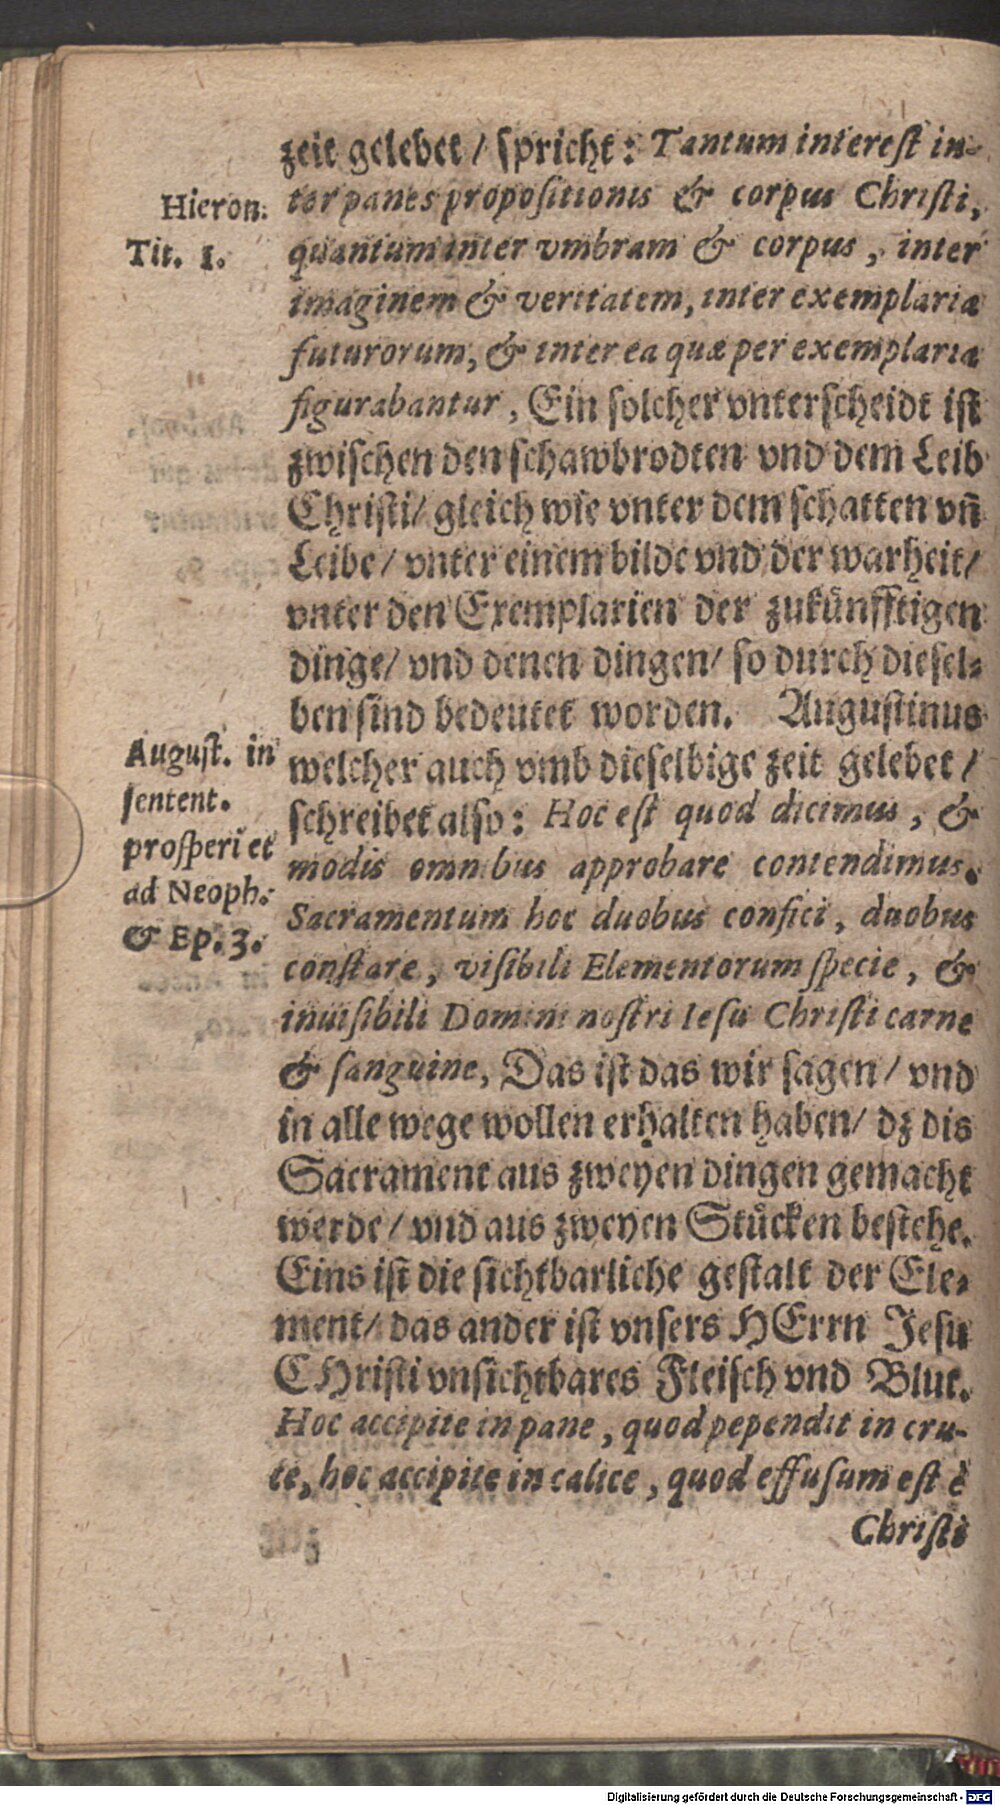 zeit gelebet / spricht: Tantum interest in-
Hieron.
Tit. 1.
ter panes propositionis & corpus Christi,
quantum inter vmbram & corpus, inter
imaginem & veritatem, inter exemplaria
futurorum, & inter ea quæ per exemplaria
figurabantur, Ein solcher vnterscheidt ist
zwischen den schawbrodten vnd dem Leib
Christi/ gleich wie vnter dem schatten vñ
Leibe/ vnter einem bilde vnd der warheit/
vnter den Exemplarien der zukünfftigen
dinge/ vnd denen dingen/ so durch diesel-
ben sind bedeutet worden. Augustinus
August. in
sentent.
prosperi et
ad Neoph:
& Ep. 3.
welcher auch vmb dieselbige zeit gelebet /
schreibet also: Hoc est quod dicimus, &
modis omnibus approbare contendimus.
Sacramentum hoc duobus confici, duobus
constare, visibili Elementorum specie, &
inuisibili Domini nostri Iesu Christi carne
& sanguine, Das ist das wir sagen/ vnd
in alle wege wollen erhalten haben/ dz dis
Sacrament aus zweyen dingen gemacht
werde/ vnd aus zweyen Stücken bestehe.
Eins ist die sichtbarliche gestalt der Ele-
ment/ das ander ist vnsers HErrn Jesu
CHristi vnsichtbares Fleisch vnd Blut.
Hoc accipite in pane, quod pependit in cru-
ce, hoc accipite in calice, quod effusum est è
Christi
Digitalisierung gefördert durch die Deutsche Forschungsgemeinschaft - DFG